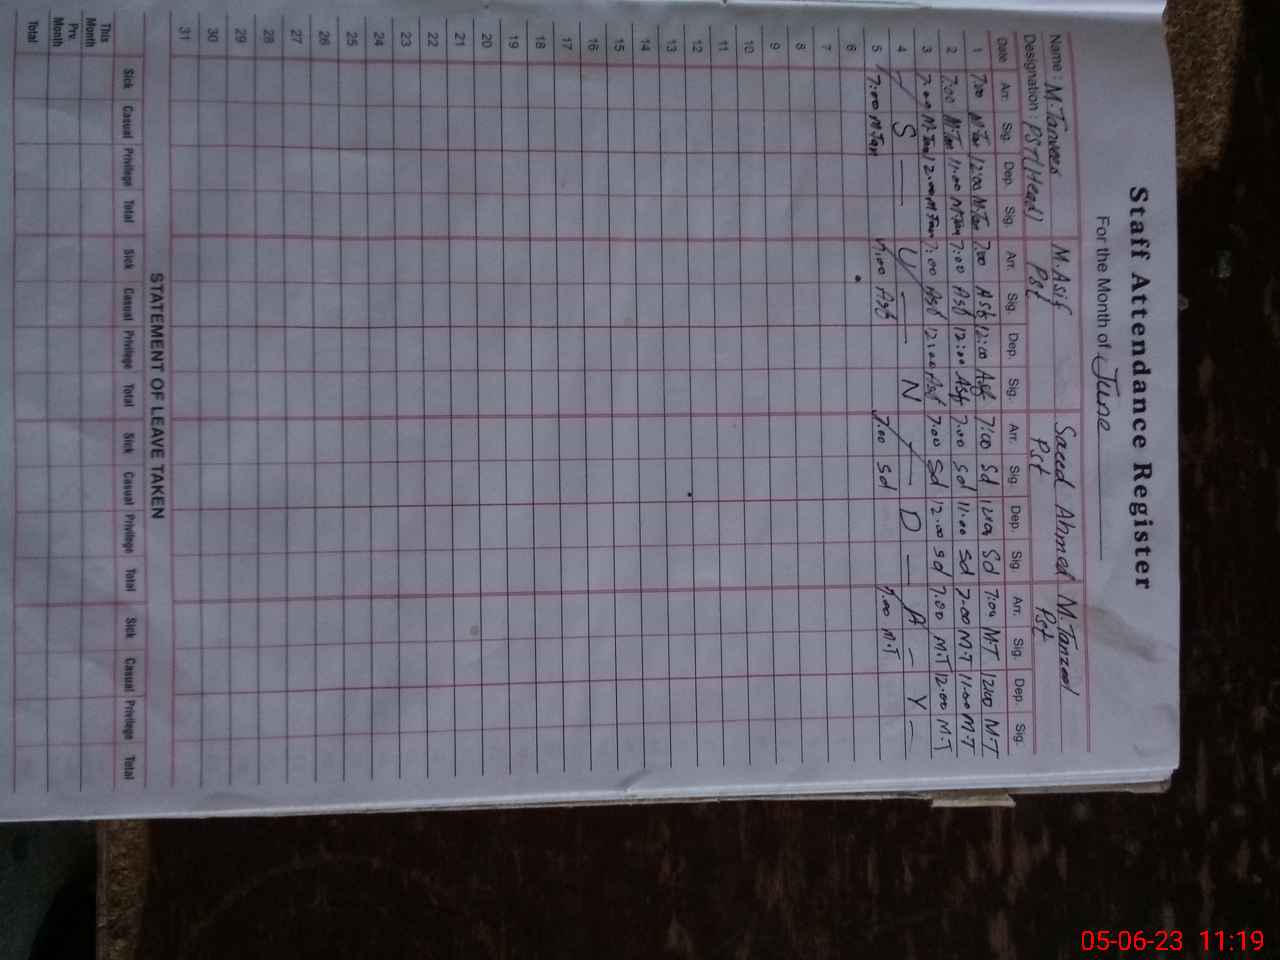 Staff Attendance Register
For the Month of June
Name : M.Tanveer M.Asif Saeed Ahmed M.Tanzeel
Designation : PST(Head) Pst Pst Pst
Date Arr. Sig. Dep. Sig. Arr. Sig. Dep. Sig. Arr. Sig. Dep. Sig. Arr. Sig. Dep. Sig.
1 7:00 M.Tan 12:00 M.Tan 7:00 Asf 12:00 Asf 7:00 Sd Sd 7:00 M.T 12:00 M.T
2 7:00 M.Tan 11:00 M.Tan 7:00 Asf 12:00 Asf 7:00 Sd 11:00 Sd 7:00 M.T 11:00 M.T
3 7:00 M.Tan 12:00 M.Tan 7:00 Asf 12:00 Asf 7:00 Sd 12:00 Sd 7:00 M.T 12:00 M.T
4 S — U — N — D — A - Y —
5 7:00 M.Tan 7:00 Asf 7:00 Sd 7:00 M.T
6
7
8
9
10
11
12
13
14
15
16
17
18
19
20
21
22
23
24
25
26
27
28
29
30
31
STATEMENT OF LEAVE TAKEN
Sick Casual Privilege Total Sick Casual Privilege Total Sick Casual Privilege Total Sick Casual Privilege Total
This Month
Prv. Month
Total
05-06-23 11:19